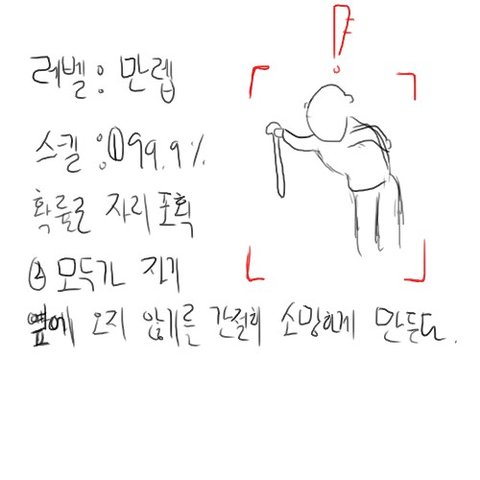 레벨 : 만렙
스킬 : ① 99.9%
확률로 자리 포획
② 모두가 자기
옆에 오지 않기를 간절히 소망하게 만든다.